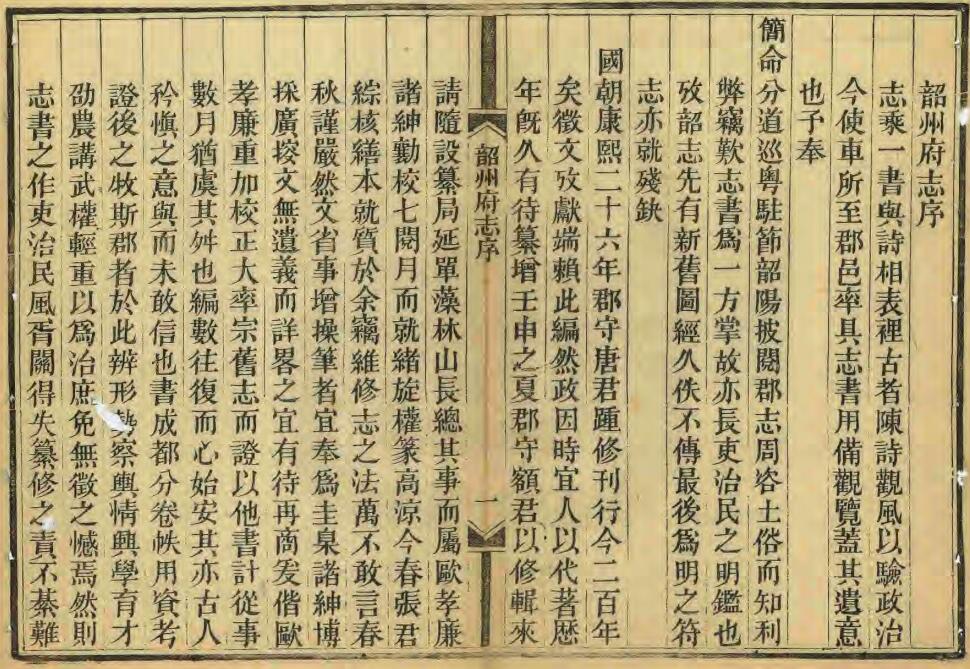 韶州府志序
志乘一書與詩相表裡古者陳詩觀風以驗政治
今使車所至郡邑率具志書用備觀覽蓋其遺意
也予奉
簡命分道巡粵駐節韶陽披閱郡志周咨土俗而知利
弊竊歎志書爲一方掌故亦長吏治民之明鑑也
攷韶志先有新舊圖經久佚不傳最後爲明之符
志亦就殘缺
國朝康熙二十六年郡守唐君踵修刊行今二百年
矣徵文攷獻端賴此編然政因時宜人以代著歴
年旣久有待纂增壬申之夏郡守額君以修輯來
韶州府志序
一
請隨設纂局延單藻林山長總其事而屬歐孝廉
諸紳勷校七閱月而就緒旋權篆高涼今春張君
綜核繕本就質於余竊維修志之法萬不敢言春
秋謹嚴然文省事增操筆者宜奉爲圭臬諸紳博
採廣搜文無遺義而詳畧之宜有待再商爰偕歐
孝廉重加校正大率宗舊志而證以他書計從事
數月猶虞其舛也編數往復而心始安其亦古人
矜愼之意與而未敢信也書成都分卷帙用資考
證後之牧斯郡者於此辨形勢察輿情興學育才
劭農講武權輕重以爲治庶免無徵之憾焉然則
志書之作吏治民風胥關得失纂修之責不綦難